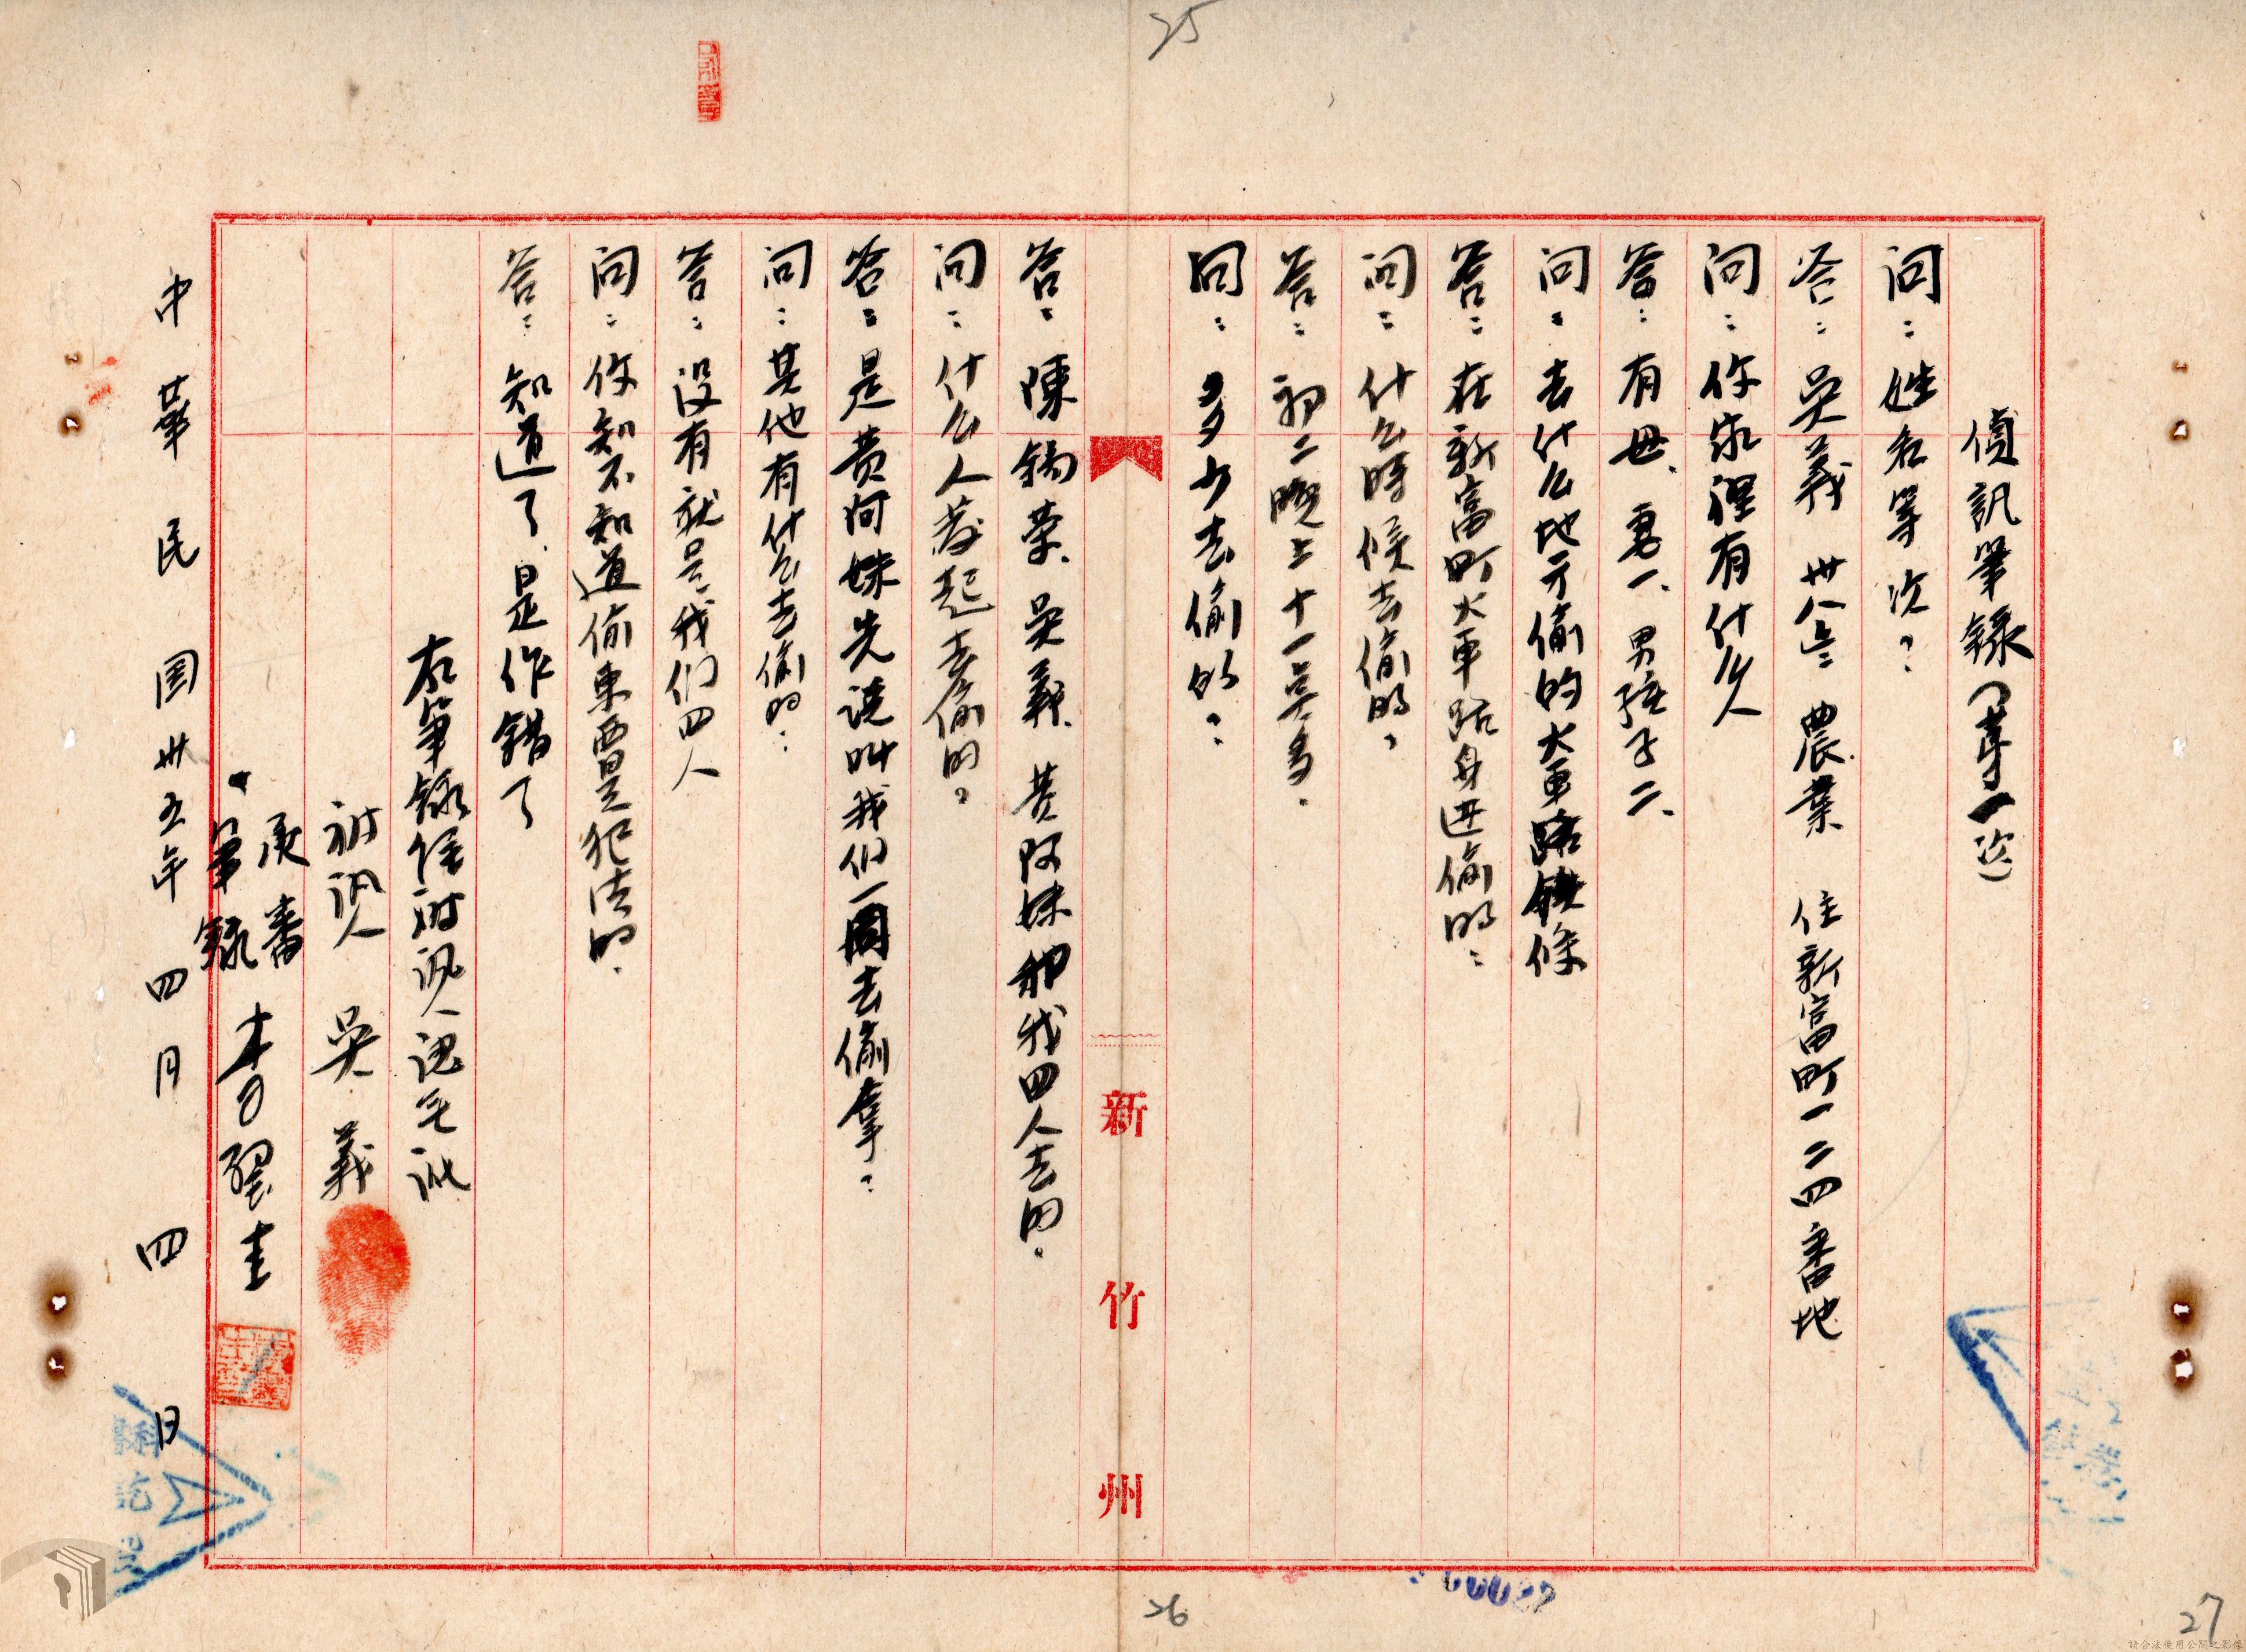 25
偵訊筆錄(第一次)
问：姓名等次？
答：吳義 卅八歲 農業 住新富町一二四番地
问：你家裡有什么人
答：有母、妻一、男孩子二、
问：去什么地方偷的火車路鉄條
答：在新富町火車路身邊偷的：
问：什么時候去偷的？
答：初二晚上十一点多．
问：多少去偷的？
新竹州
答：陳錫荣、吳義、黄阿妹和我四人去的．
问：什么人发起去偷的？
答：是黄阿妹先说叫我们一同去偷拿：
问：其他有什么去偷的：
答：没有就是我们四人
问：你知不知道偷東西是犯法的．
答：知道了、是作錯了
右筆録經被訊人認無訛
被訊人 吳義
承審
筆録 李聖圭
中華民国卅五年四月四日
26
27
請合法使用公開之影像